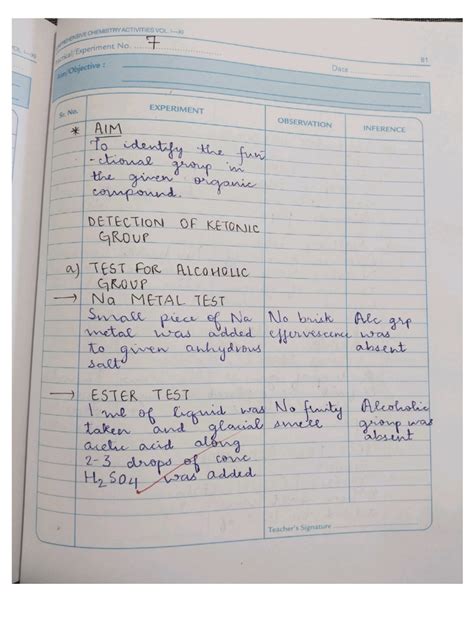 COMPREHENSIVE CHEMISTRY ACTIVITIES VOL. I—XI
Practical/Experiment No. 7
81
Date
Aim/Objective :
Sr. No. EXPERIMENT OBSERVATION INFERENCE
* AIM
To identify the fun
-ctional group in
the given organic
compound.
DETECTION OF KETONIC
GROUP
a) TEST FOR ALCOHOLIC
GROUP
→ Na METAL TEST
Small piece of Na No brisk Alc grp
metal was added effervescence was
to given anhydrous absent
salt
→ ESTER TEST
1 ml of liquid was No fruity Alcoholic
taken and glacial smell group was
acetic acid along absent
2-3 drops of conc
H2SO4 was added
Teacher's Signature